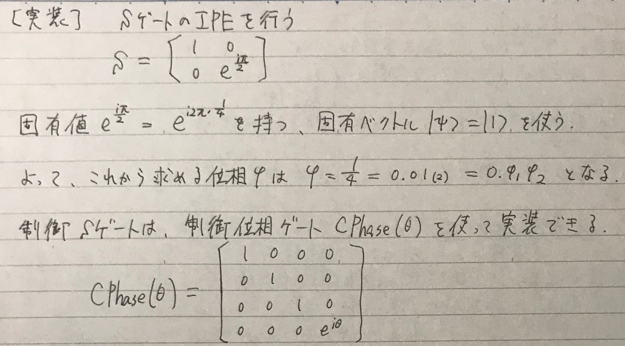 [実装] SゲートのIPEを行う
S = [ 1 0
0 e^{iπ/2} ]
固有値 e^{iπ/2} = e^{i2π・1/4} を持つ、固有ベクトル |ψ> = |1> を使う.
よって、これから求める位相φは φ = 1/4 = 0.01(2) = 0.φ₁φ₂ となる.
制御Sゲートは、制御位相ゲート CPhase(θ) を使って実装できる.
1 0 0 0
0 1 0 0
CPhase(θ) =
0 0 1 0
0 0 0 e^{iθ}